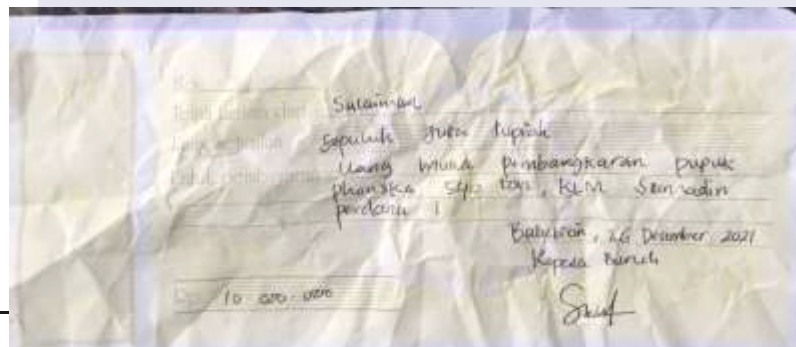 Telah terima dari Sulaiman
Uang sejumlah Sepuluh Juta rupiah
Untuk pembayaran Uang muka pembangkaran pupuk
phonska 540 ton, KLM
perdana 1
26 Desember 2021
Kepala Buruh
Rp. 10.000.000